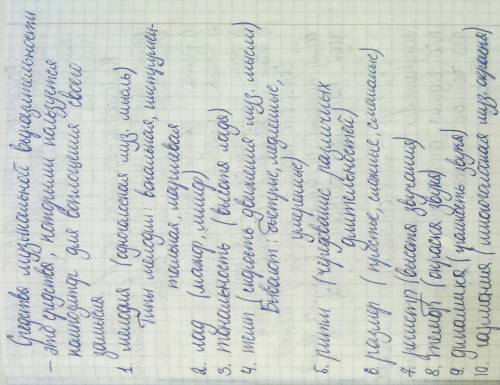 Средства музыкальной выразительности
– это средства, которыми пользуется
композитор для воплощения своего
замысла
1. мелодия (одноголосная муз. мысль)
Типы мелодии: вокальная, инструмен-
тальная, речевая
2. лад (мажор, минор)
3. тональность (высота лада)
4. темп (скорость движения муз. мысли)
Бывают: быстрые, медленные,
умеренные)
5. ритм (чередование различных
длительностей)
6. размер (простые, сложные, смешаные)
7. регистр (высота звучания)
8. тембр (окраска звука)
9. динамика (громкость звука)
10. гармония (многоголосная муз. окраска)